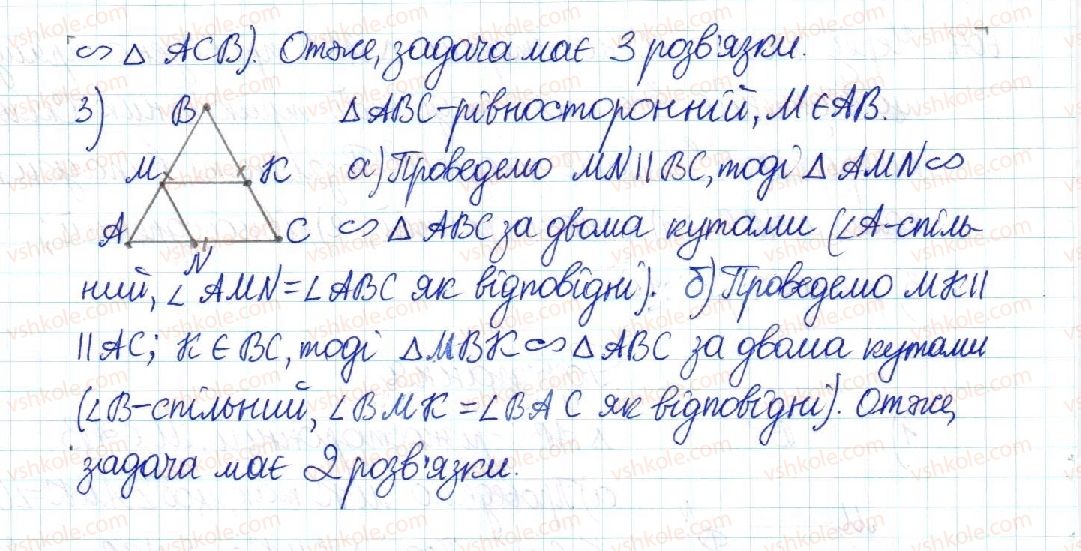 ∽ Δ ACB). Отже, задача має 3 розв'язки.
3) B Δ ABC-рівносторонній, M∈AB.
M K а) Проведемо MN||BC, тоді Δ AMN∽
A C ∽ Δ ABC за двома кутами (∠A-спіль-
N
ний, ∠AMN=∠ABC як відповідні). б) Проведемо MK||
||AC; K∈BC, тоді ΔMBK∽ΔABC за двома кутами
(∠B-спільний, ∠BMK=∠BAC як відповідні). Отже,
задача має 2 розв'язки.